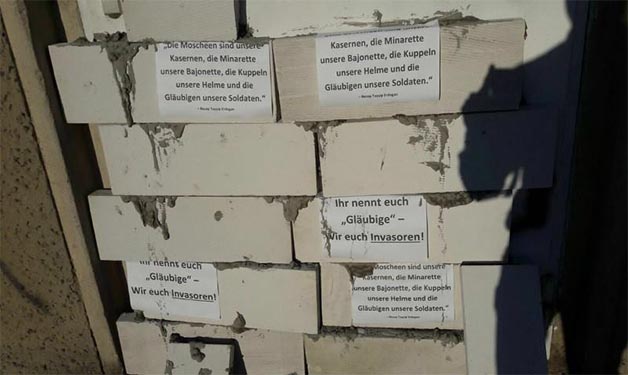 „Die Moscheen sind unsere
Kasernen, die Minarette
unsere Bajonette, die Kuppeln
unsere Helme und die
Gläubigen unsere Soldaten.“
- Recep Tayyip Erdogan
Kasernen, die Minarette
unsere Bajonette, die Kuppeln
unsere Helme und die
Gläubigen unsere Soldaten.“
- Recep Tayyip Erdogan
Ihr nennt euch
„Gläubige“ –
Wir euch Invasoren!
Ihr nennt euch
„Gläubige“ –
Wir euch Invasoren!
„Die Moscheen sind unsere
Kasernen, die Minarette
unsere Bajonette, die Kuppeln
unsere Helme und die
Gläubigen unsere Soldaten.“
- Recep Tayyip Erdogan